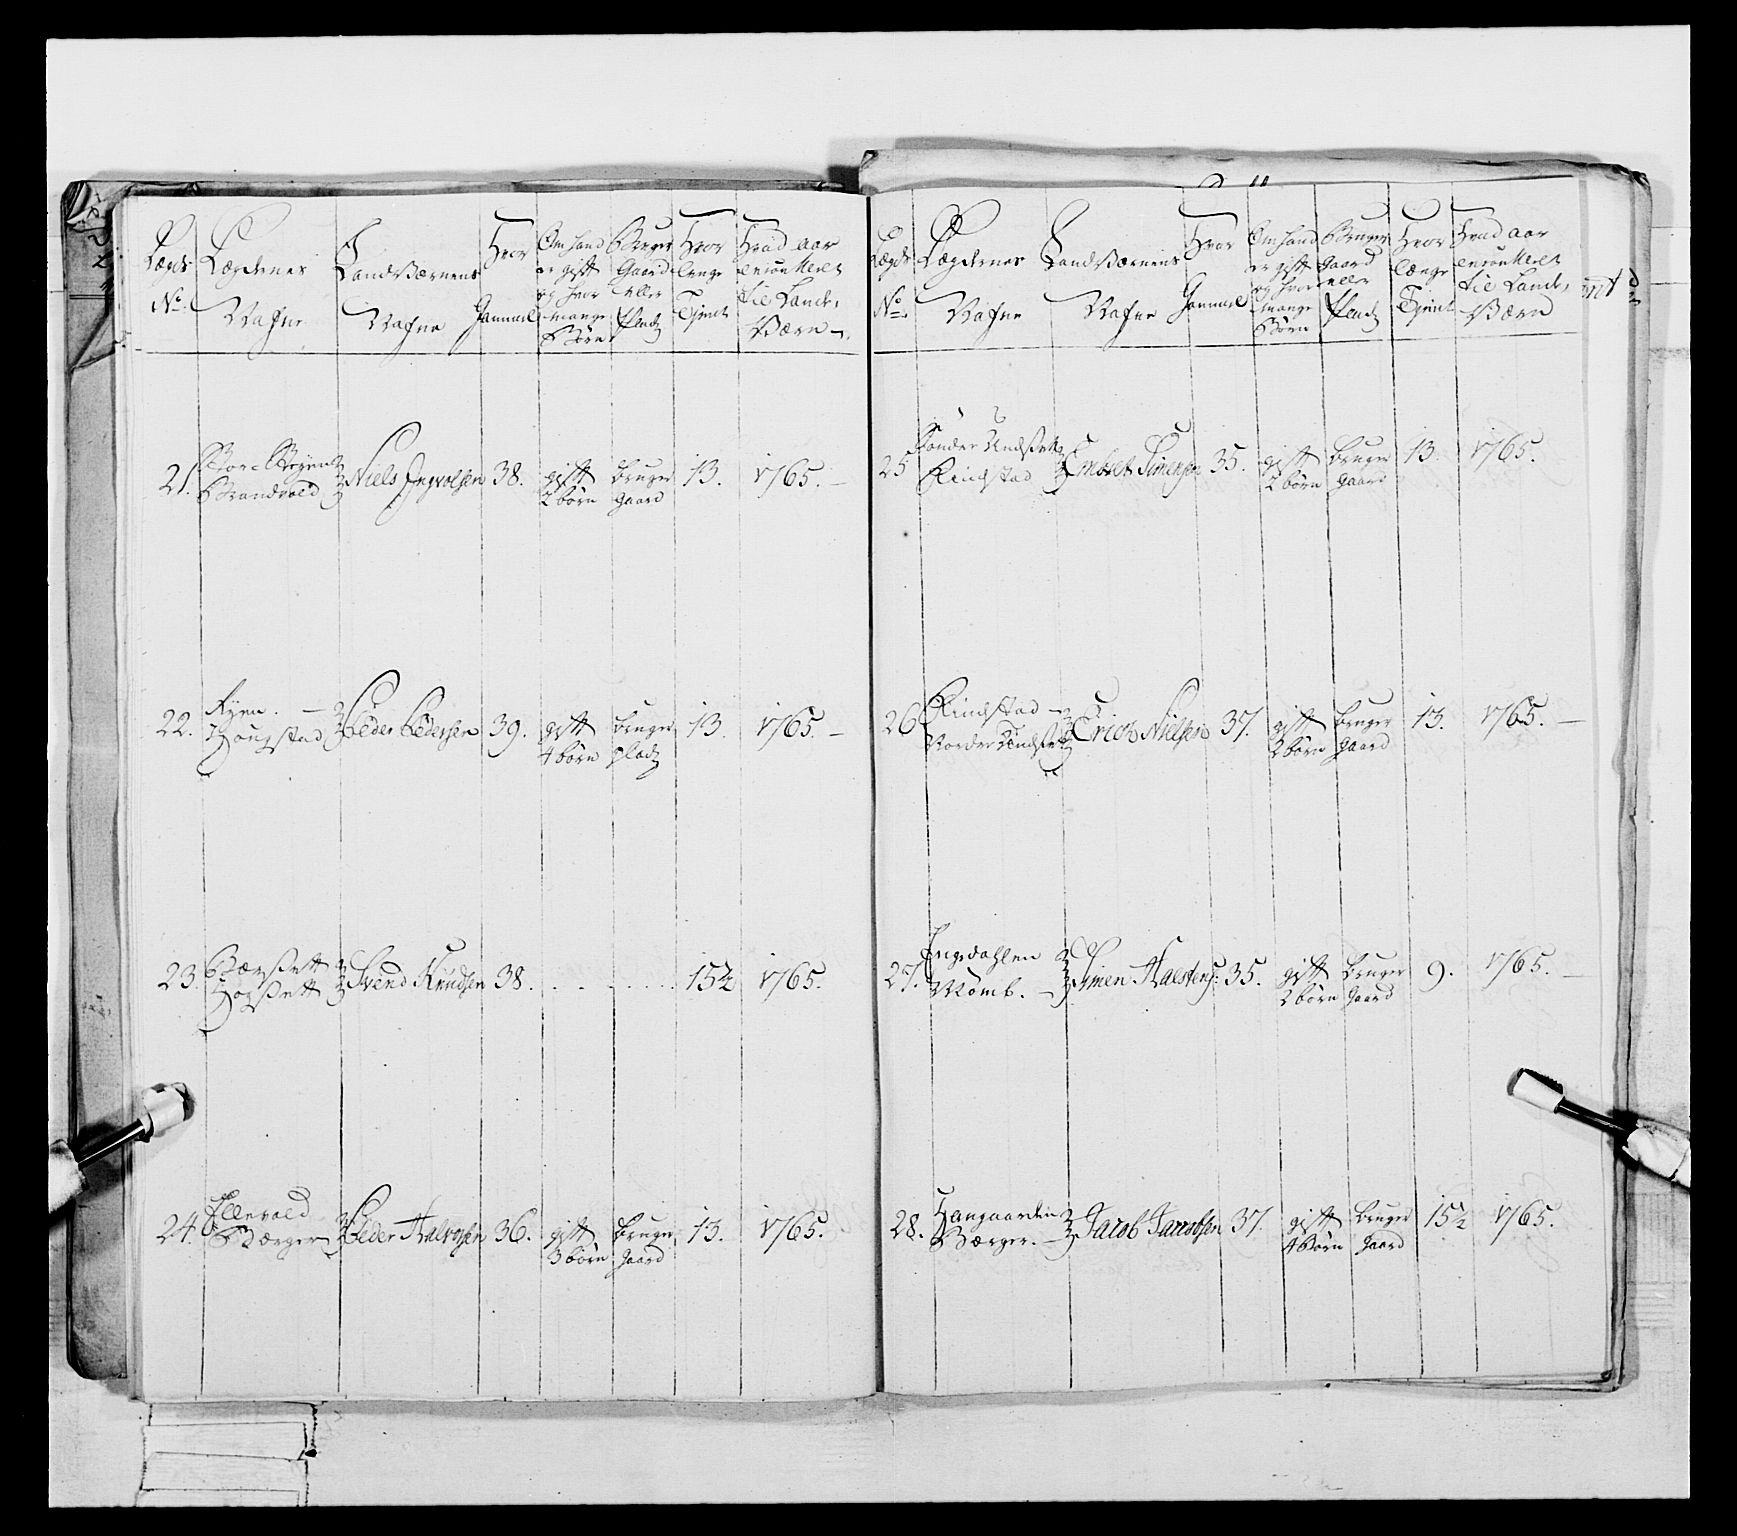 Lægds No. | Lægdernes Nafne | LandVærnens Nafne | Hvor Gammel | Om hand er gift og hvor mange Børn | Bruger Gaard eller Plads | Hvor længe Tjent | Hvad aar enroulleret til Land-Værn
21. | Brandvold | Niels Ingvolsen | 38. | gift 2 børn | bruger gaard | 13. | 1765.
22. | Ryen Hougstad | Peder Pedersen | 39. | gift 4 børn | bruger plads | 13. | 1765.
23. | Svend Knudsen | 38. | 15½ | 1765.
24. | Ellevold Berger | Peder Halvorsen | 36. | gift 3 børn | bruger gaard | 13. | 1765.
Lægds No. | Lægdernes Nafne | LandVærnens Nafne | Hvor Gammel | Om hand er gift og hvor mange Børn | Bruger Gaard eller Plads | Hvor længe Tjent | Hvad aar enroulleret til Land-Værn
25. | Sønder Undset Rindstad | Embret Simensen | 35. | gift 2 børn | bruger gaard | 13. | 1765.
26. | Rindstad Norder Undset | Erich Nielsen | 37. | gift 2 børn | bruger gaard | 13. | 1765.
27. | Engdahlen Momb. | Simen Halstens: | 35. | gift 2 børn | bruger gaard | 9. | 1765.
28. | Haugaarden Berger. | Jacob Jacobsen | 37. | gift 4 børn | bruger gaard | 15½ | 1765.